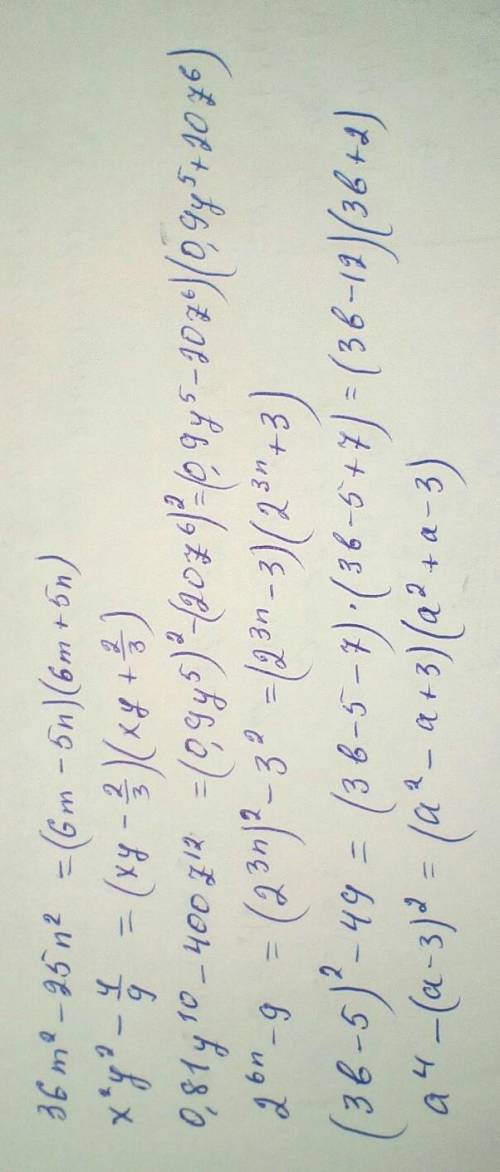 36m² - 25n² = (6m - 5n)(6m + 5n)
x²y² - 4/9 = (xy - 2/3)(xy + 2/3)
0,81y¹⁰ - 400z¹² = (0,9y⁵)² - (20z⁶)² = (0,9y⁵ - 20z⁶)(0,9y⁵ + 20z⁶)
2⁶ⁿ - 9 = (2³ⁿ)² - 3² = (2³ⁿ - 3)(2³ⁿ + 3)
(3b - 5)² - 49 = (3b - 5 - 7)·(3b - 5 + 7) = (3b - 12)(3b + 2)
a⁴ - (a - 3)² = (a² - a + 3)(a² + a - 3)